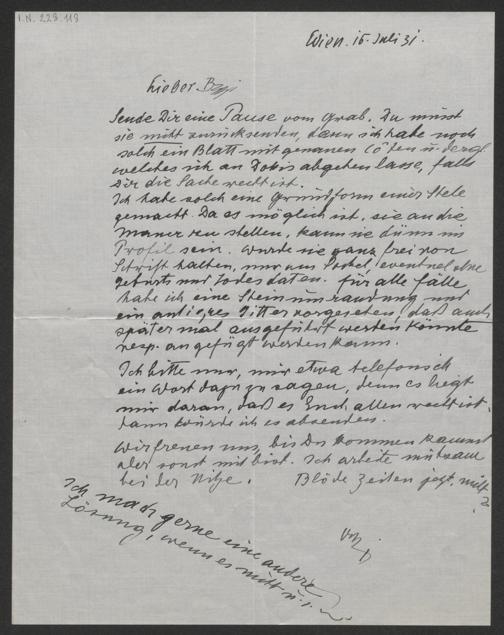 I.N. 229.119
Wien. 15. Juli 31.
Lieber
Sende Dir eine Pause vom Grab. Du müsst
sie nicht zurücksenden, denn ich habe noch
solch ein Blatt mit genauen Cöten u. dergl.
welches ich an abgehen lasse, falls
Dir die Sache recht ist.
Ich habe solch eine Grundform einer Stele
gemacht. Da es möglich ist, sie an die
Mauer zu stellen, kann sie dünn im
Profil sein. Würde sie ganz frei von
Schrift halten, nur am Sockel, eventuel ohne
Geburts und Todesdaten. Für alle Fälle
habe ich eine Steinumrandung und
ein Gitter vorgesehen, daß auch
später mal ausgeführt werden könnte
resp. angefügt werden kann.
Ich bitte nur, mir etwa telefonisch
ein Wort dazu zu sagen, denn es liegt
mir daran, daß es Euch allen recht ist.
Dann würde ich es absenden.
Wir freuen uns, bis Du kommen kannst
aber sonst mit Ich arbeite mühsam
bei der Hitze. Blöde Zeiten jetzt, nicht?
Ich mach gerne eine andere
Lösung, wenn es nicht